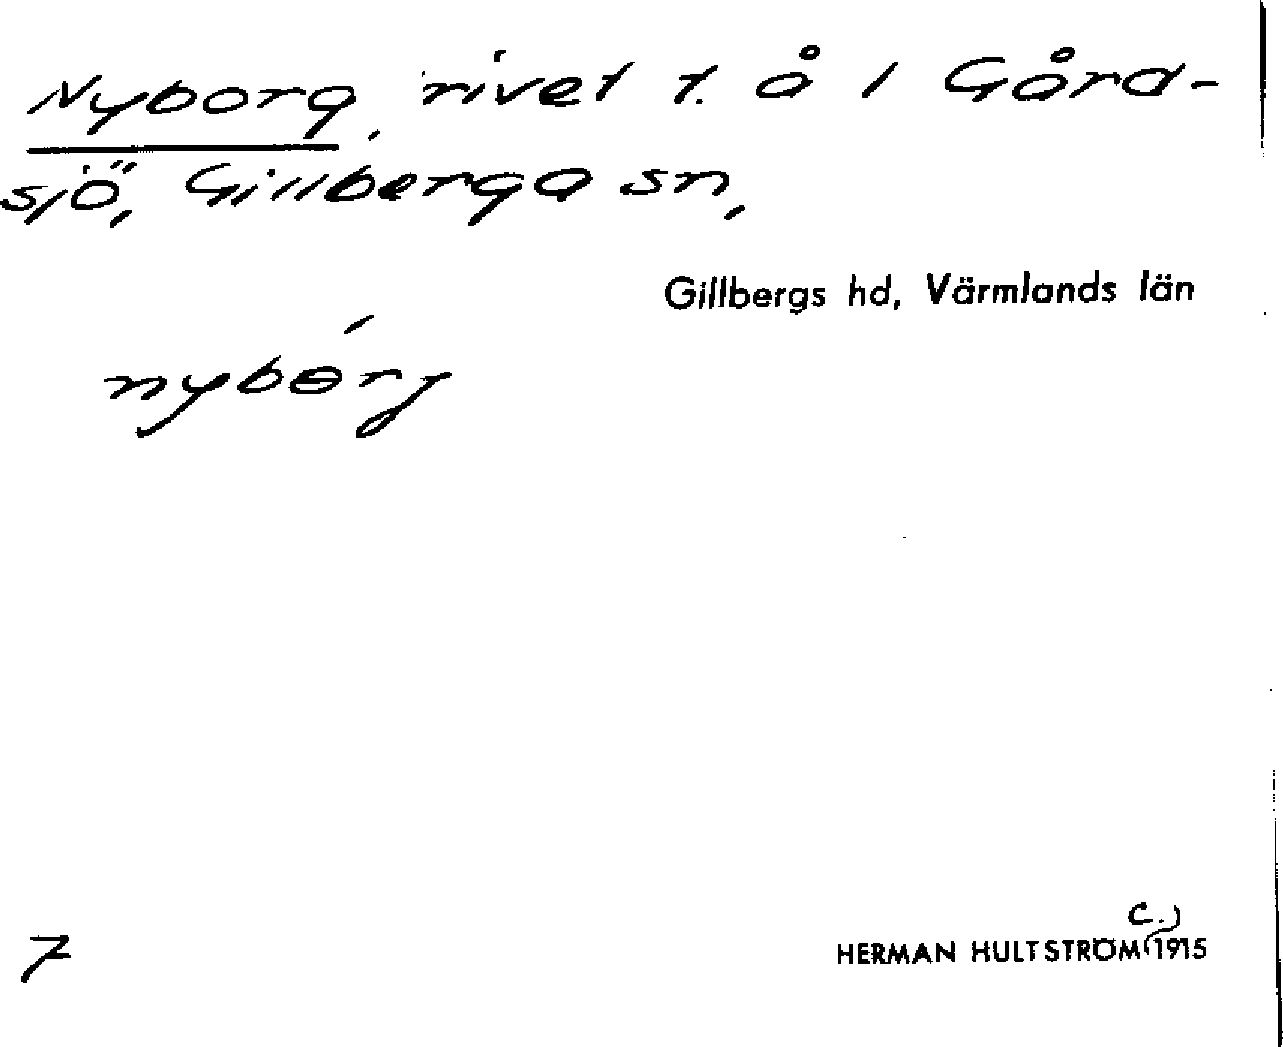 Nyborg, rivet t. å i Gård-
sjö, Gillberga sn,
Gillbergs hd, Värmlands län
nybɵrg
7
HERMAN HULTSTRÖM (c.) 1915